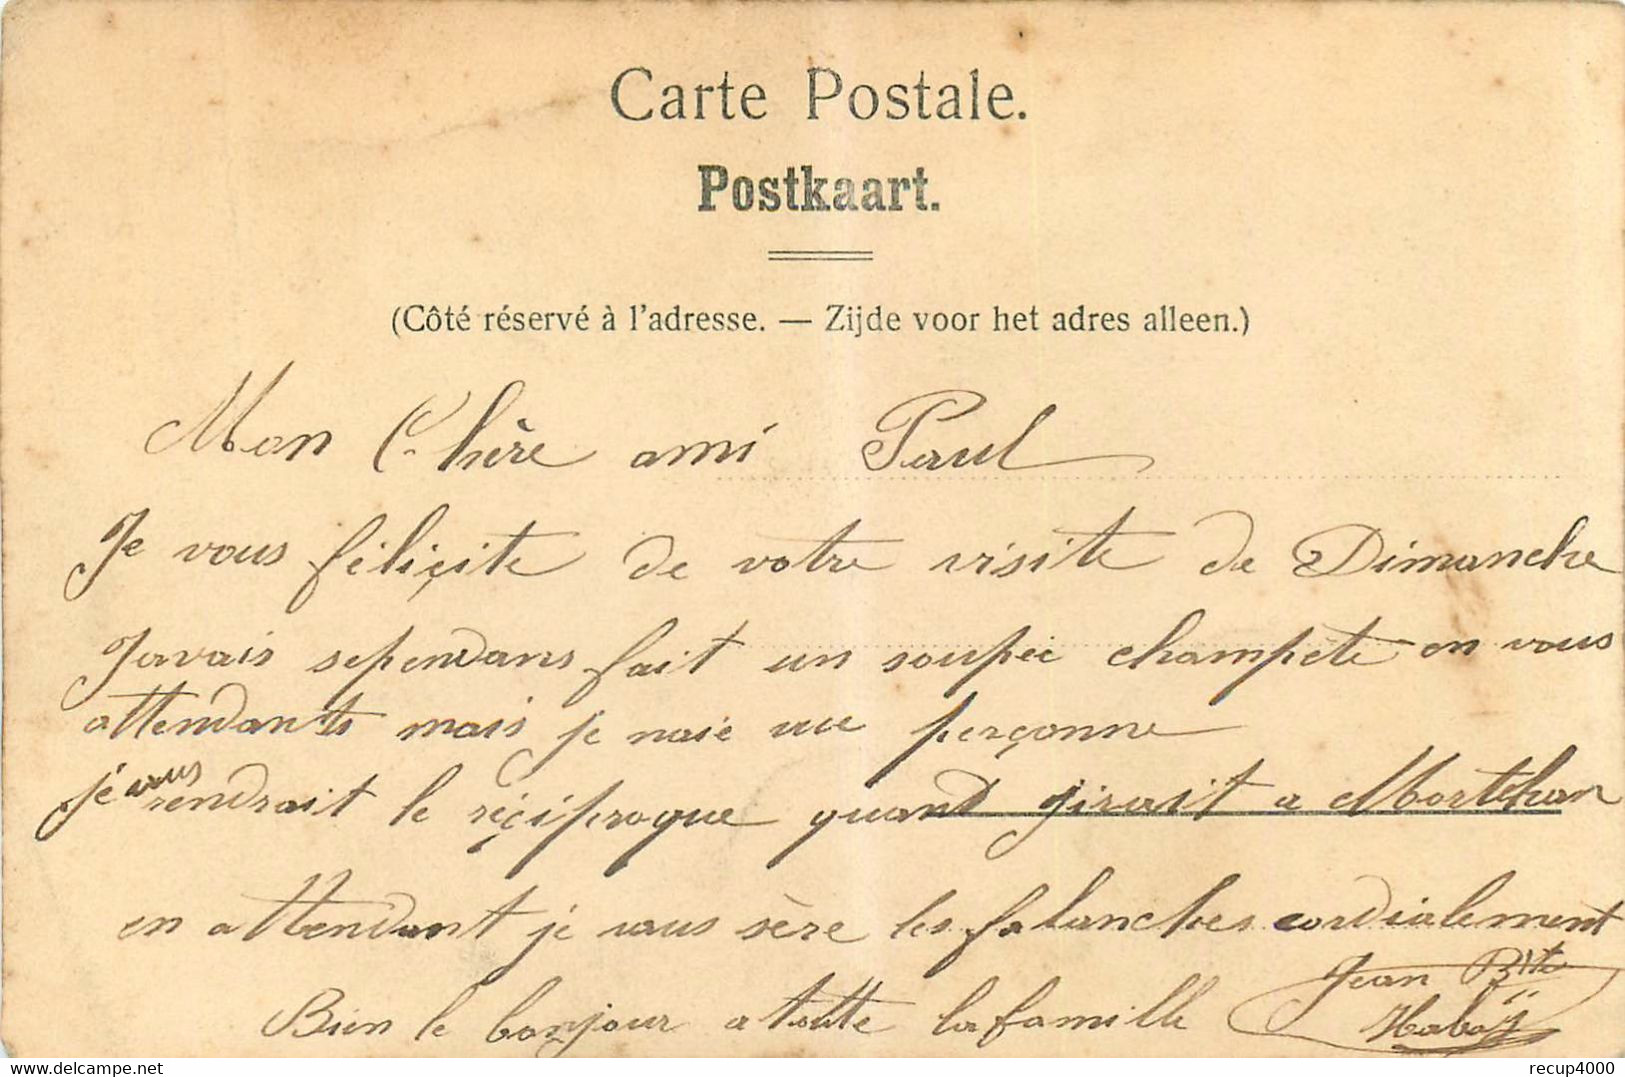 Carte Postale.
Postkaart.
(Côté réservé à l'adresse. — Zijde voor het adres alleen.)
Mon Chère ami Paul
Je vous féliçite de votre visite de Dimanche
Javais sependans fait un soupée champète en vous
attendants mais je naie vue perçonne
je vous rendrait le réçiproque quand jirait a Mortehan
en attendant je vous sère les falanches cordialement
Bien le bonjour a toute la famille
Jean Bte
Habaÿ
recup4000
www.delcampe.net